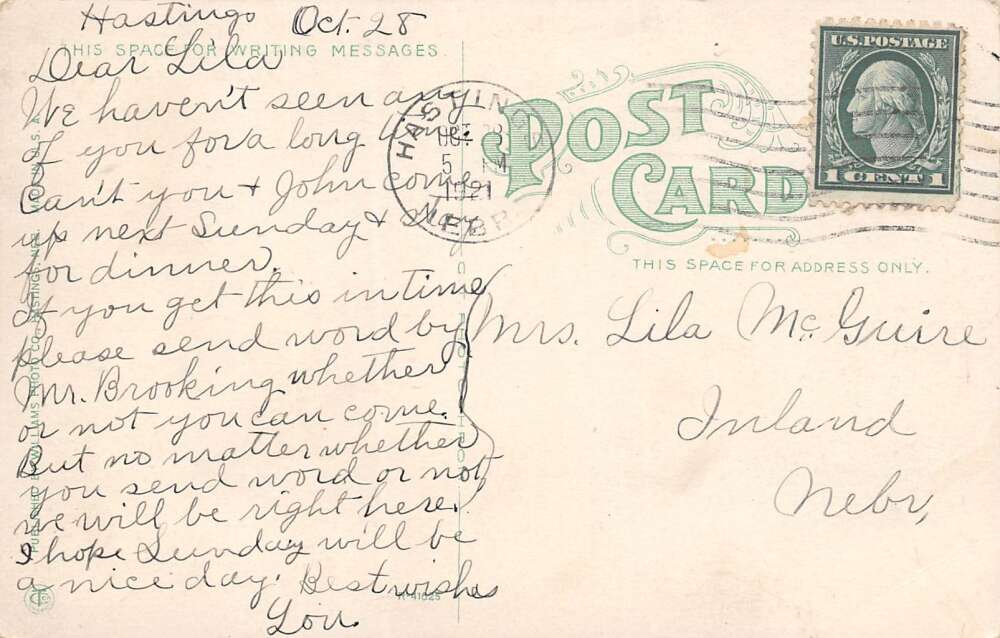 Hastings Oct. 28
THIS SPACE FOR WRITING MESSAGES.
Dear Lila
We haven't seen any
of you for a long time.
Can't you & John come
up next Sunday & stay
for dinner.
If you get this in time
please send word by
Mr. Brooking whether
or not you can come.
But no matter whether
you send word or not
we will be right here.
I hope Sunday will be
a nice day. Best wishes
Lou.
HASTINGS
OCT 28
5 PM
1921
NEBR.
POST
CARD
U.S. POSTAGE
1 CENT 1
THIS SPACE FOR ADDRESS ONLY.
Mrs. Lila McGuire
Inland
Nebr,
PUBLISHED BY WILLIAMS PHOTO CO., HASTINGS, NEB.
R-41025